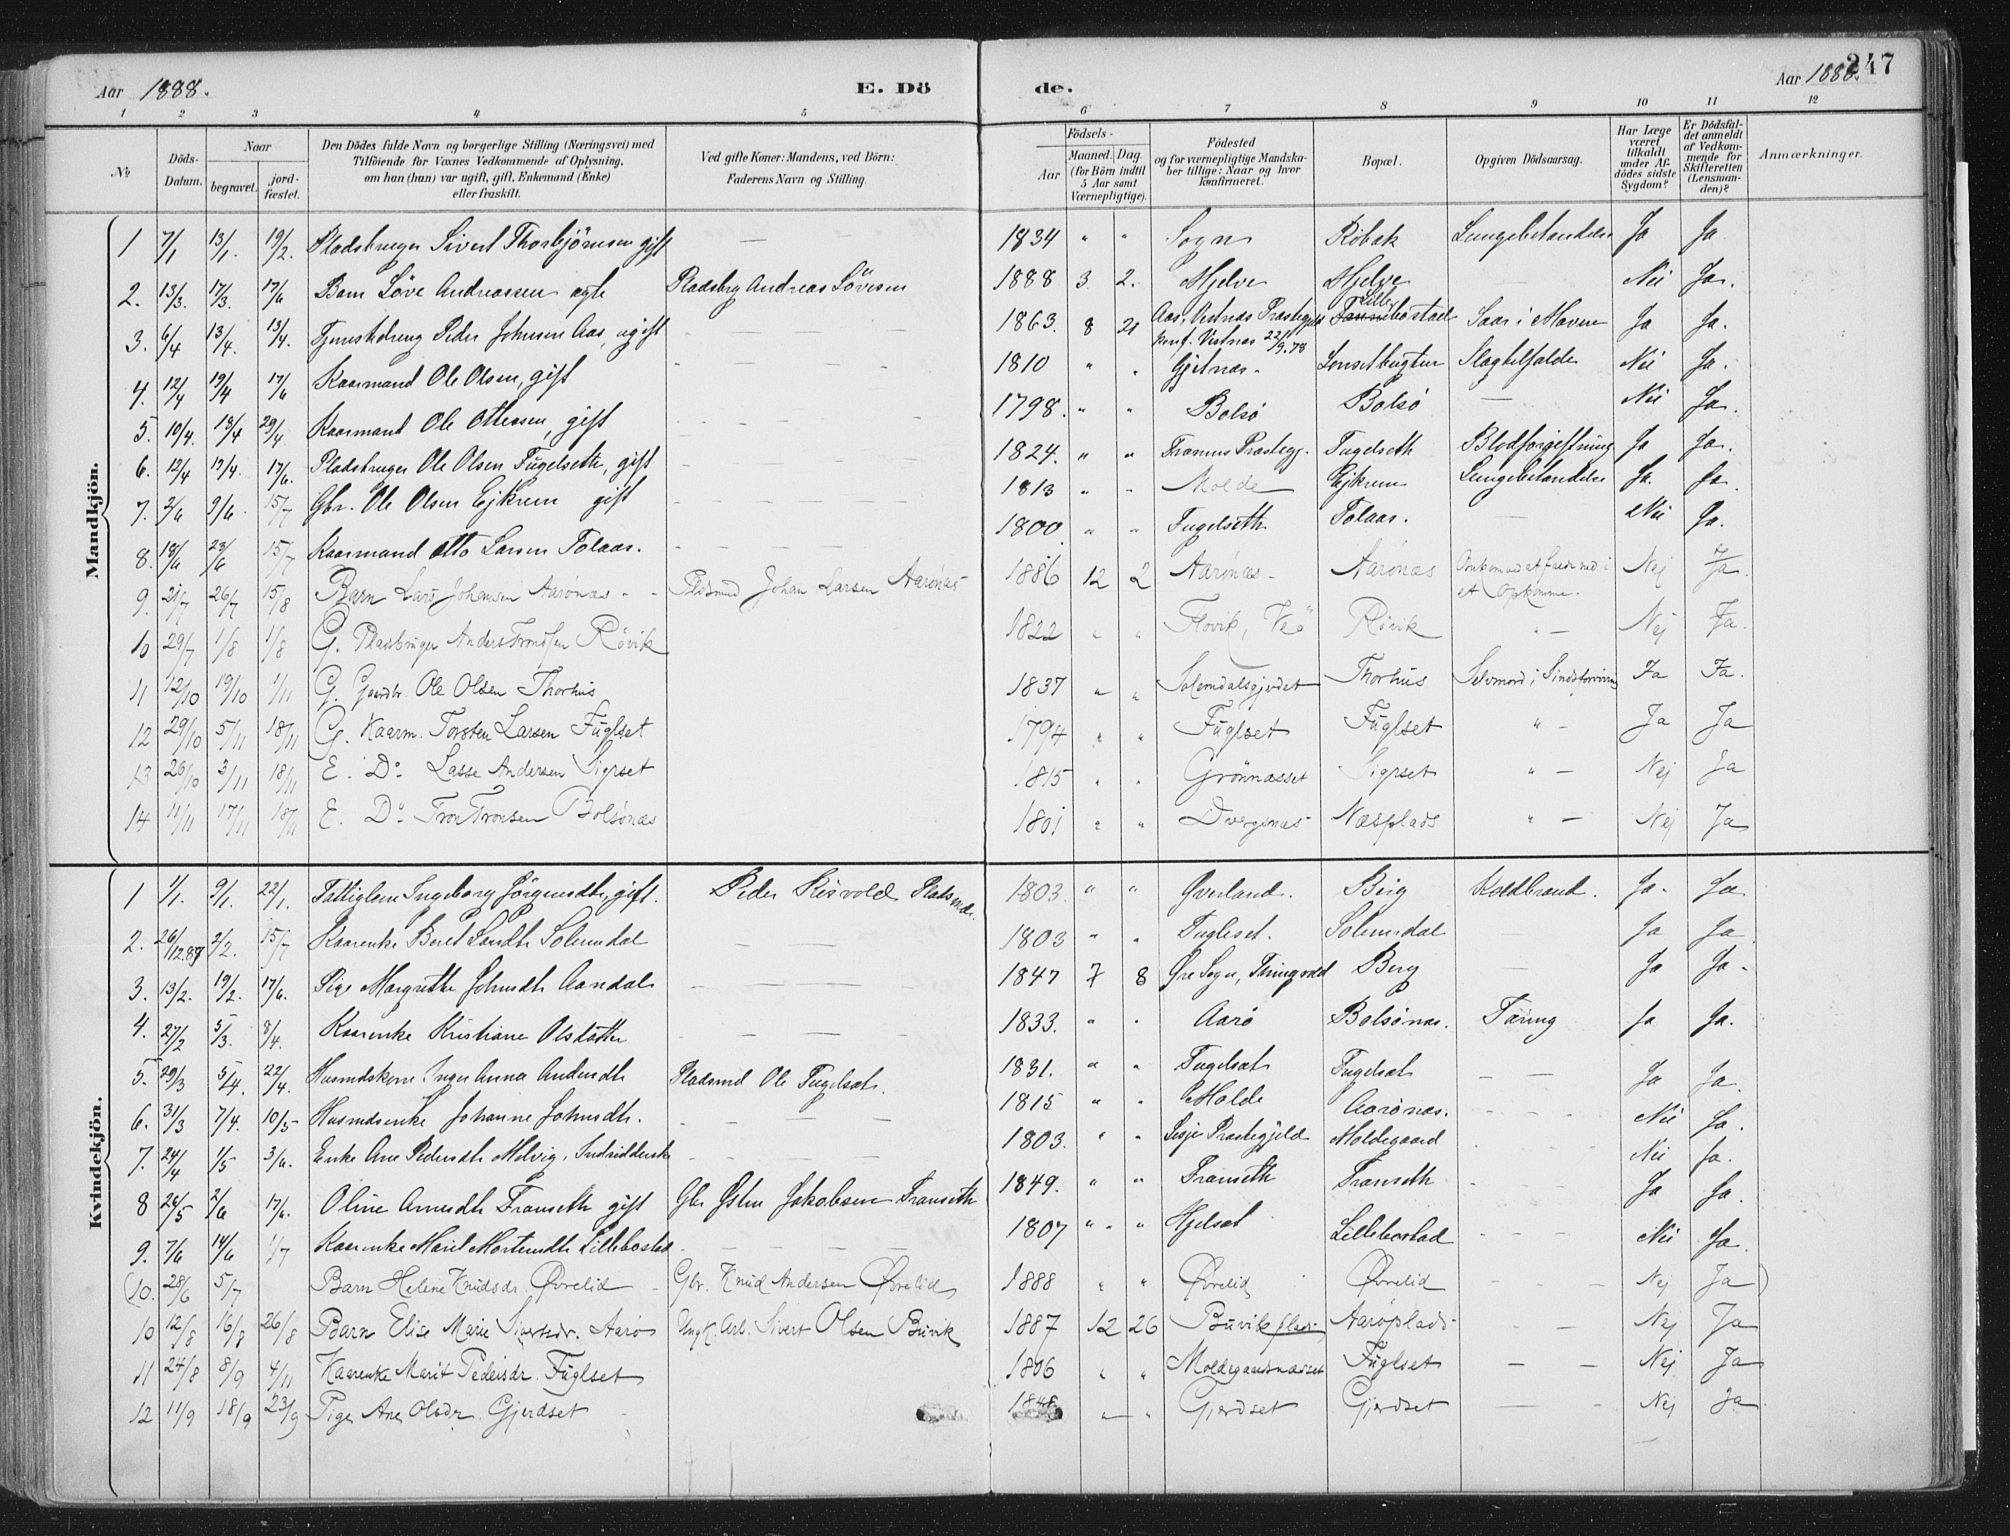 Aar 1888. E. Dö
de. Aar 1888. 247
1 2 3 4 5 6 7 8 9 10 11 12
No
Döds-Datum.
Naar
begravet.
jord-fæstet.
Den Dödes fulde Navn og borgerlige Stilling (Næringsvei) med
Tilföiende for Voxnes Vedkommende af Oplysning,
om han (hun) var ugift, gift, Enkemand (Enke)
eller fraskilt.
Ved gifte Koner: Mandens, ved Börn:
Faderens Navn og Stilling.
Födsels-
Aar
Maaned. Dag.
(for Börn indtil
5 Aar samt
Værnepligtige).
Födested
og for værnepligtige Mandska-
ber tillige: Naar og hvor
konfirmeret.
Bopæl.
Opgiven Dödsaarsag.
Har Læge
været
tilkaldt
under Af-
dödes sidste
Sygdom?
Er Dödsfal-
det anmeldt
af Vedkom-
mende for
Skifteretten
(Lensman-
den)?
Anmærkninger.
Mandkjön.
1 7/1 13/1. 19/2. Pladsbruger Sivert Thorbjörnsen gift — — 1834 " " Sogn Röbak Lungebetændelse Ja Ja
2. 13/3. 17/3. 17/6 Barn Löve Andreassen ægte Pladsbrg Andreas Lövesen 1888 3. 2. Hjelve Hjelve — Nei Ja.
3. 6/4 13/4. 13/4. Tjenestedreng Peder Johnsen Aas, ugift — — 1863. 8 21 Aas, Vestnæs Præstegjeld Lillebostad Saar i Maven Ja Ja.
konf. Vestnæs 22/9.78
4. 12/4 19/4 17/6 Kaarmand Ole Olsen, gift — — 1810 " " Gjitnæs. Lonsetbugten Slagtilfælde Nei Ja.
5. 10/4. 13/4 29/4. Kaarmand Ole Ottesen, gift — — 1798. " " Bolsö Bolsö — Nei Ja.
6. 12/4 19/4. 17/6. Pladsbruger Ole Olsen Fugelseth, gift — — 1824. " " Frænens Præstegj. Fugelseth Blodforgiftning Ja Ja.
7. 2/6 9/6. 15/7 Gbr. Ole Olsen Ejkrem gift — — 1813 " " Molde Ejkrem Lungebetændelse Ja. Ja.
8. 18/6 23/6 15/7 Kaarmand Otto Larsen Tolaas. — — 1800. " " Fugelseth Tolaas. — Nei Ja.
9. 21/7 26/7 15/8 Barn Lars Johansen Aarönæs Pladsmd Johan Larsen Aarönæs 1886 12 2 Aarönæs Aarönæs Omkommet at falde ned i Nej Ja.
et Opkomme.
10 29/7 1/8 1/8 G. Pladsbruger Anders Trondsen Rövik 1822 " " Flovik, Veö Rövik " — Nej Ja.
11 12/10 19/10 1/11 G. Gaardbr. Ole Olsen Thorhus 1837 " " Solemdalsgjerdet Thorhus Selvmord i Ja Ja.
12 29/10 5/11 18/11 G. Kaarm. Torsten Larsen Fuglset 1794 " " Fuglset Fuglset " — Ja Ja
13 26/10 3/11 18/11 E. Do Lasse Andersen 1815 " " Grönnæsset " — Nej Ja
14 11/11 17/11 18/11 E. Do Tron Tronsen Bolsönæs 1801 " " Dvergsnæs Næsplads " — Nej Ja
Kvindekjön.
1 1/1. 9/1. 22/1. Fattiglem Ingeborg Jörgensdtr, gift. Peder Risvold Pladsmd. 1803. " " Øverland. Berg Koldbrand. Ja. Ja
2. 26/12.87 2/2. 15/7 Kaarenke Beret Larsdtr Solemdal — — 1803 " " Fugleset. Solemsdal — Ja Ja.
3. 13/2. 19/2. 17/6. Pige Margrethe Johnsdtr Aandal — — 1847 7 8 Øre Sogn, Thingvold Berg — Ja Ja.
4. 27/2 5/3. 8/4. Kaarenke Kristiane Olsdatter — — 1833. " " Aarö Bolsönæs. Tæring Ja Ja.
5. 29/3 5/4. 22/4. Husmdskone Inger Anna Andersdtr Pladsmd Ole Fugelsæt. 1831. " " Fugelsæt Fugelsæt — — Ja Ja.
6. 31/3 7/4. 10/5 Husmdsenke Johanne Johnsdtr. — — 1815 " " Molde Aarönæs. — Nei Ja.
7. 24/4 1/5 3/6. Enke Ane Pedersdtr Melvig, — — 1803. " " Præstegjeld Moldegaard — Nei Ja.
8 26/5 2/6 17/6. Oline Arnesdtr Franseth gift Gbr Østen Jakobsen Franseth 1849. " " Franseth Franseth — Ja Ja.
9. 7/6 14/6 1/7 Kaarenke Marit Mortensdtr Lillebostad — — 1807 " " Hjelset Lillebostad — Nei Ja.
(10. 28/6 5/7 Barn Helene Knudsdr. Øvrelid Gbr. Knud Andersen Øvrelid 1888 " " Øvrelid Øvrelid — — Nej Ja)
10 12/8 16/8 26/8 Barn Elise Marie Sivertsdr. Aarö Ungk. Arb. Sivert Olsen Buvik 1887 12 26 Buvik plads Aaröplads Nej Ja
11 24/8 8/9 4/11 Kaarenke Marit Pedersdr. Fuglset 1806 " " Moldegaardsnæsset Fuglset — — Nej Ja
12 11/9 18/9 23/9 Pige Ane Olsdr. Gjerdset 1848 " " Gjerdset Gjerdset — — Nej Ja.